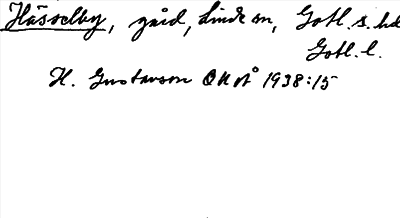 Hässelby, gård, Linde sn, Gotl. s. hd
Gotl. l.
H. Gustavson ONoÅ 1938:15